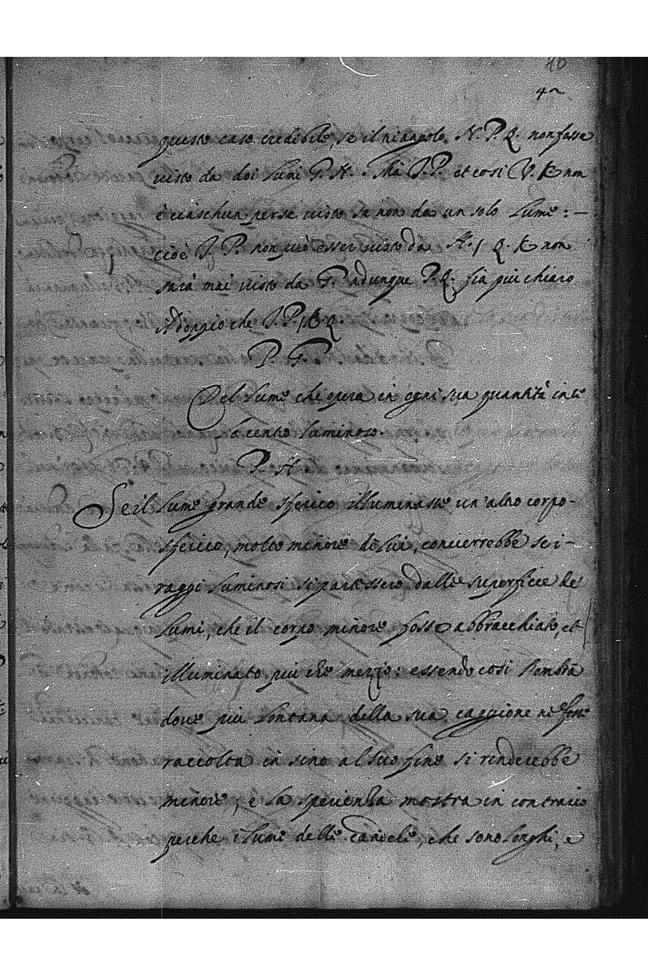 40
42
questo caso credibile, se il triangolo N. P. Q. non fusse
visto da doi lumi G. H. Ma J. P. et cosi V. K non
è ciaschun per se visto se non da un solo lume: —
cioè J. P. non può esser visto da H. / Q. K non
sarà mai visto da G. adunque P. Q. sia più chiaro
il doppio che J. P. / K Q.
P. G.
Del lume che opera in ogni sua quantità in
lo cento luminoso.
P. H
Se il lume grande sferico illuminasse un' altro corpo
sferico, molto minore di lui, converrebbe se i
raggi luminosi si partissero dalle superficie de
lumi, che il corpo minore fosse abbracchiato, et
illuminato più che mezzo: essendo cosi l'ombra
dove più lontana della sua caggione ne fosse
raccolta in sino al suo fine si renderebbe
minore, e la sperienza mostra in contrario
perche i lumi delle candele, che sono longhi, e